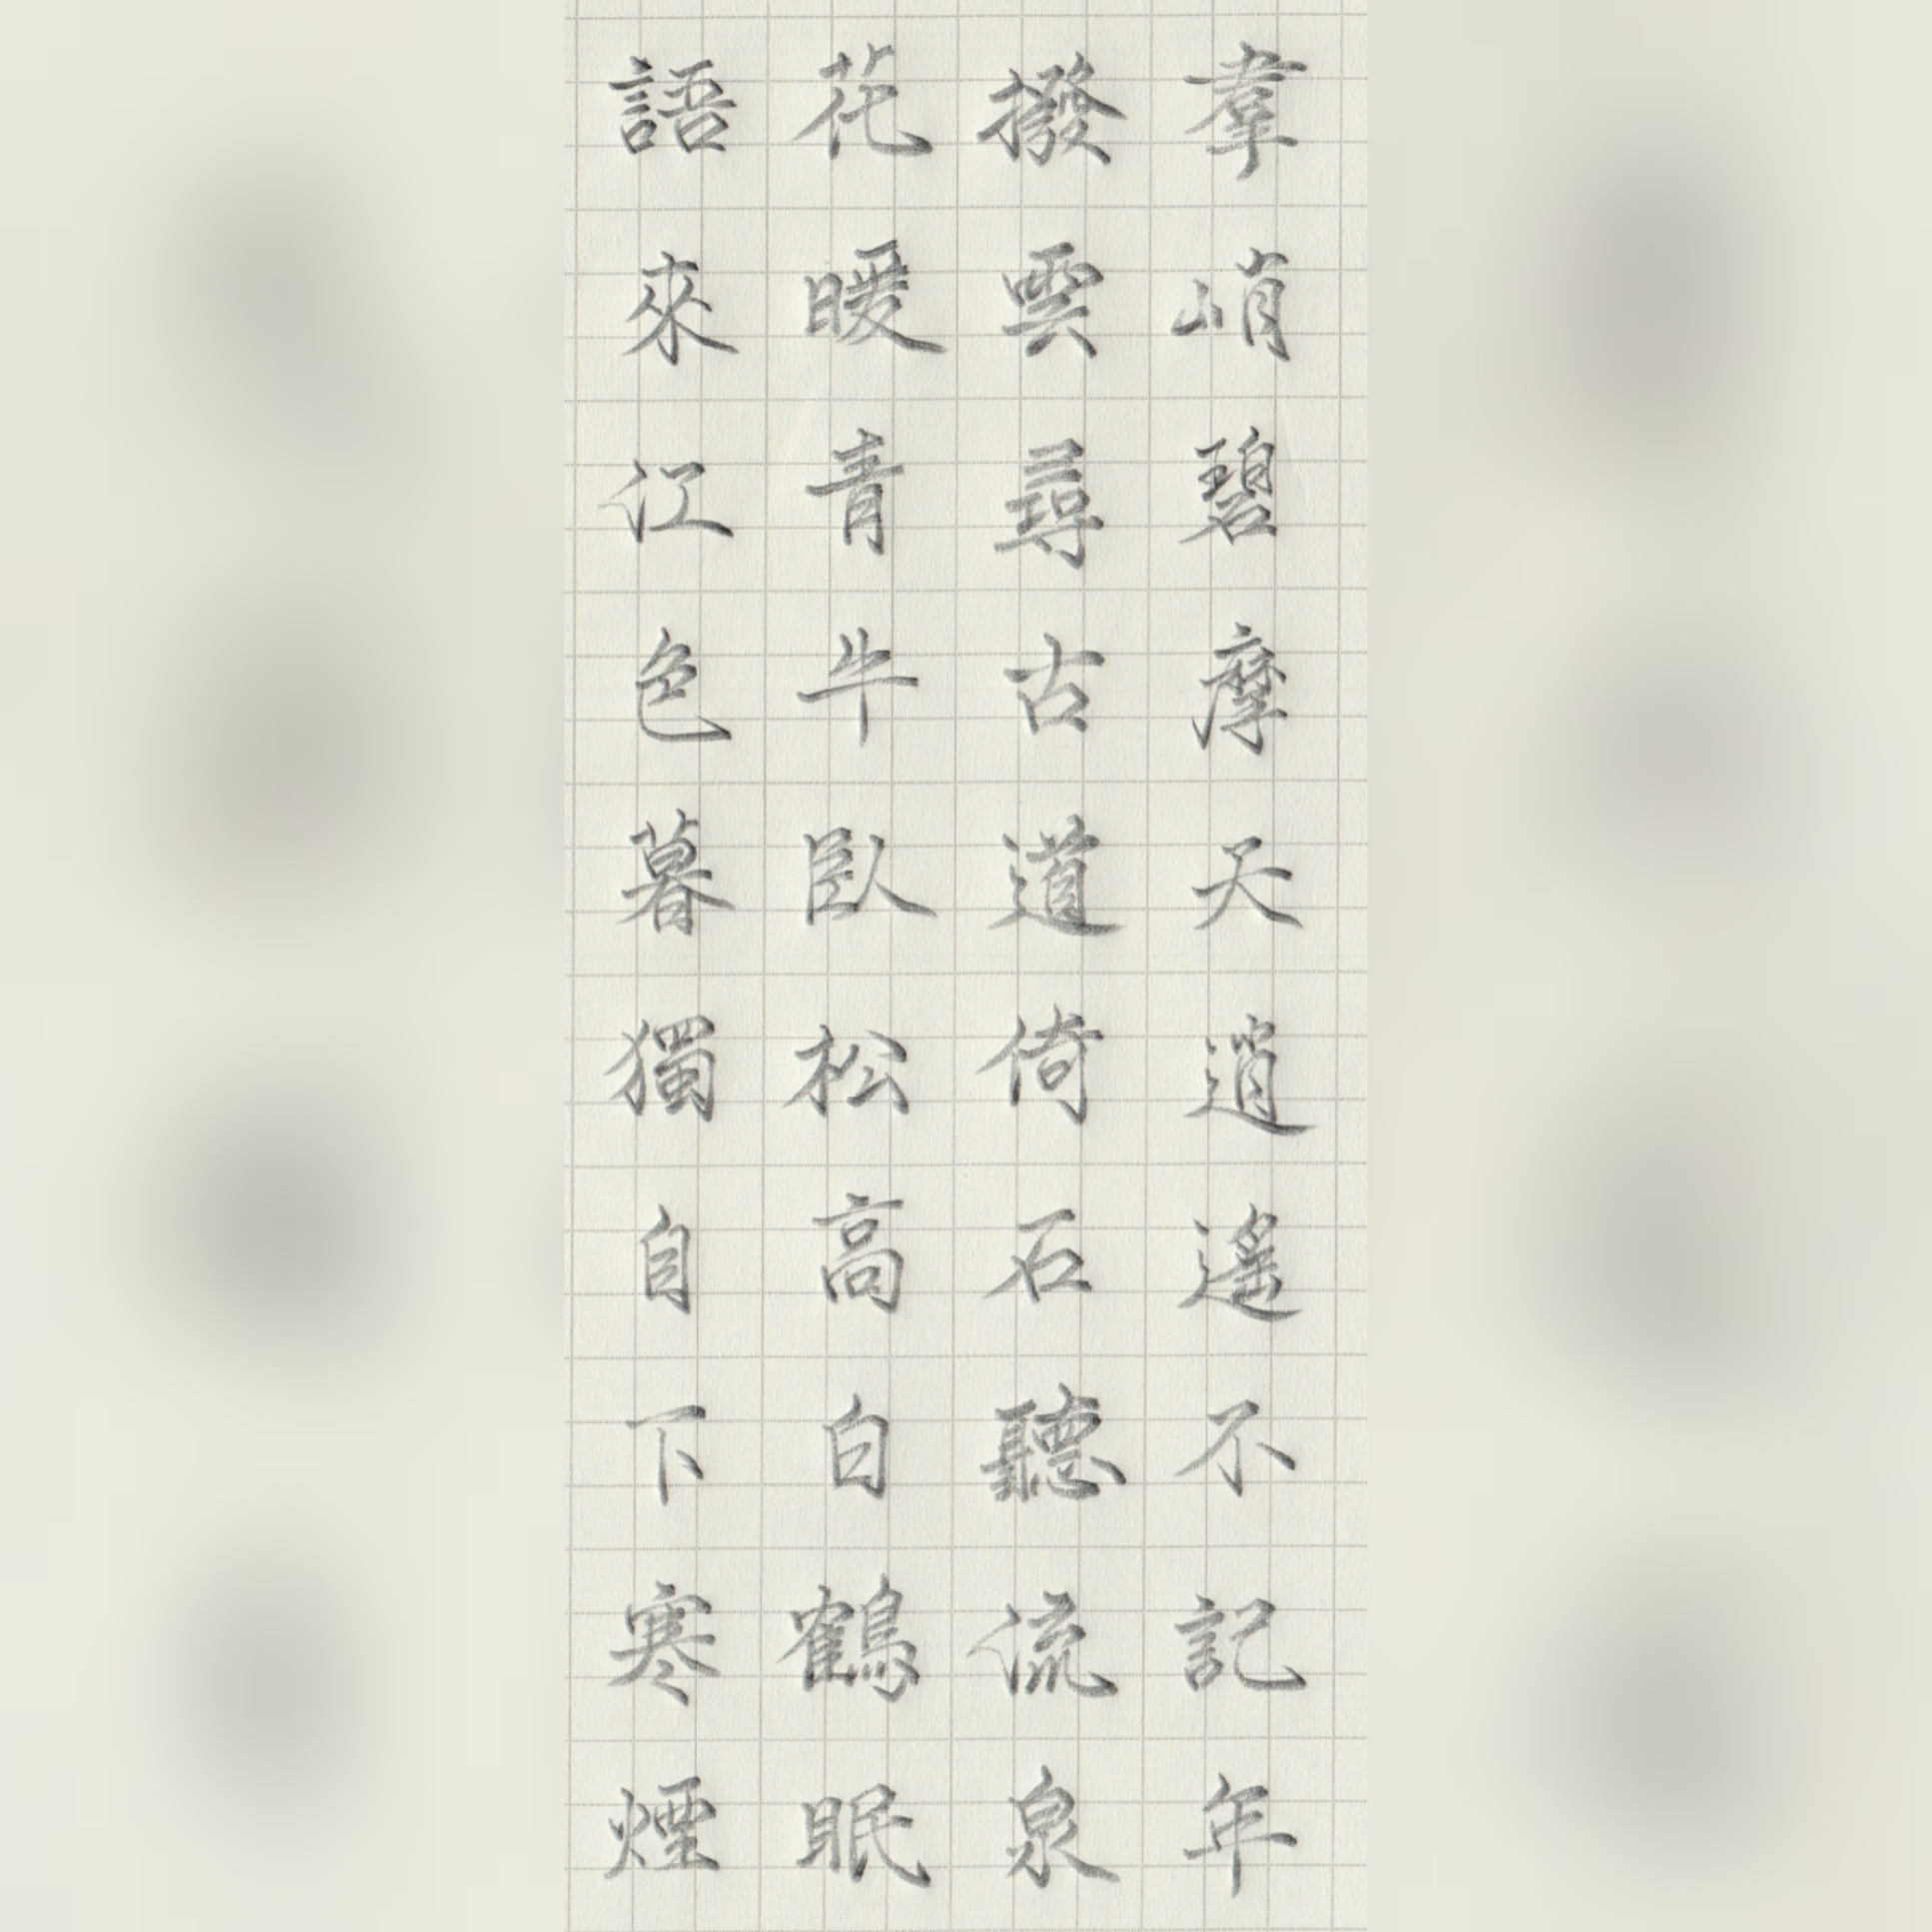 羣峭碧摩天逍遙不記年
撥雲尋古道倚石聽流泉
花暖青牛臥松高白鶴眠
語來江色暮獨自下寒煙